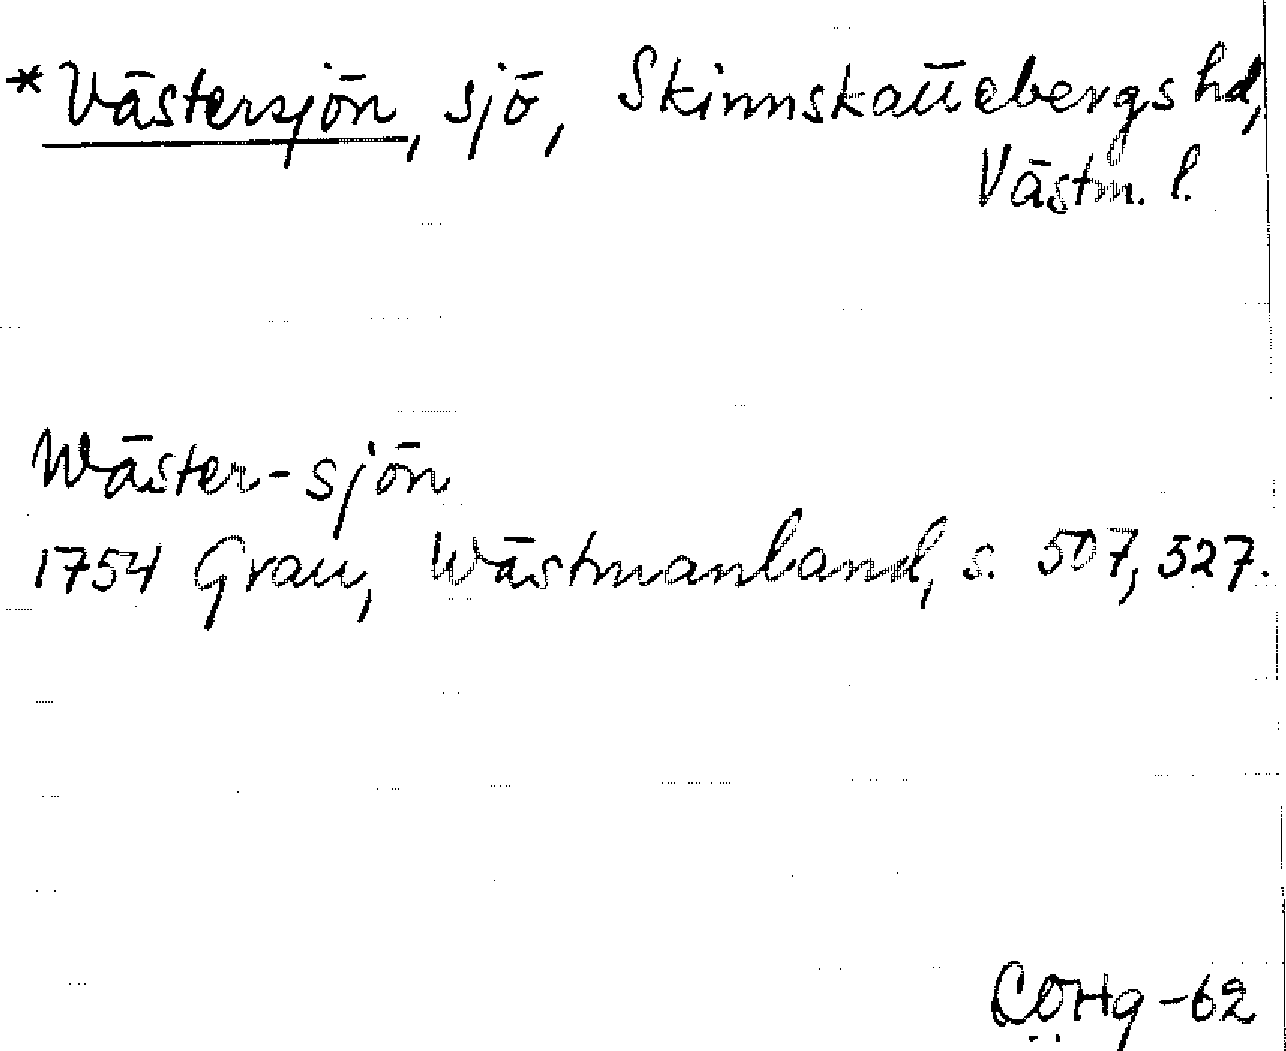 *Västersjön, sjö, Skinnskattebergs hd,
Västm. l.
Wäster-sjön
1754 Grau, Wästmanland, s. 507, 527.
CÖHg -62